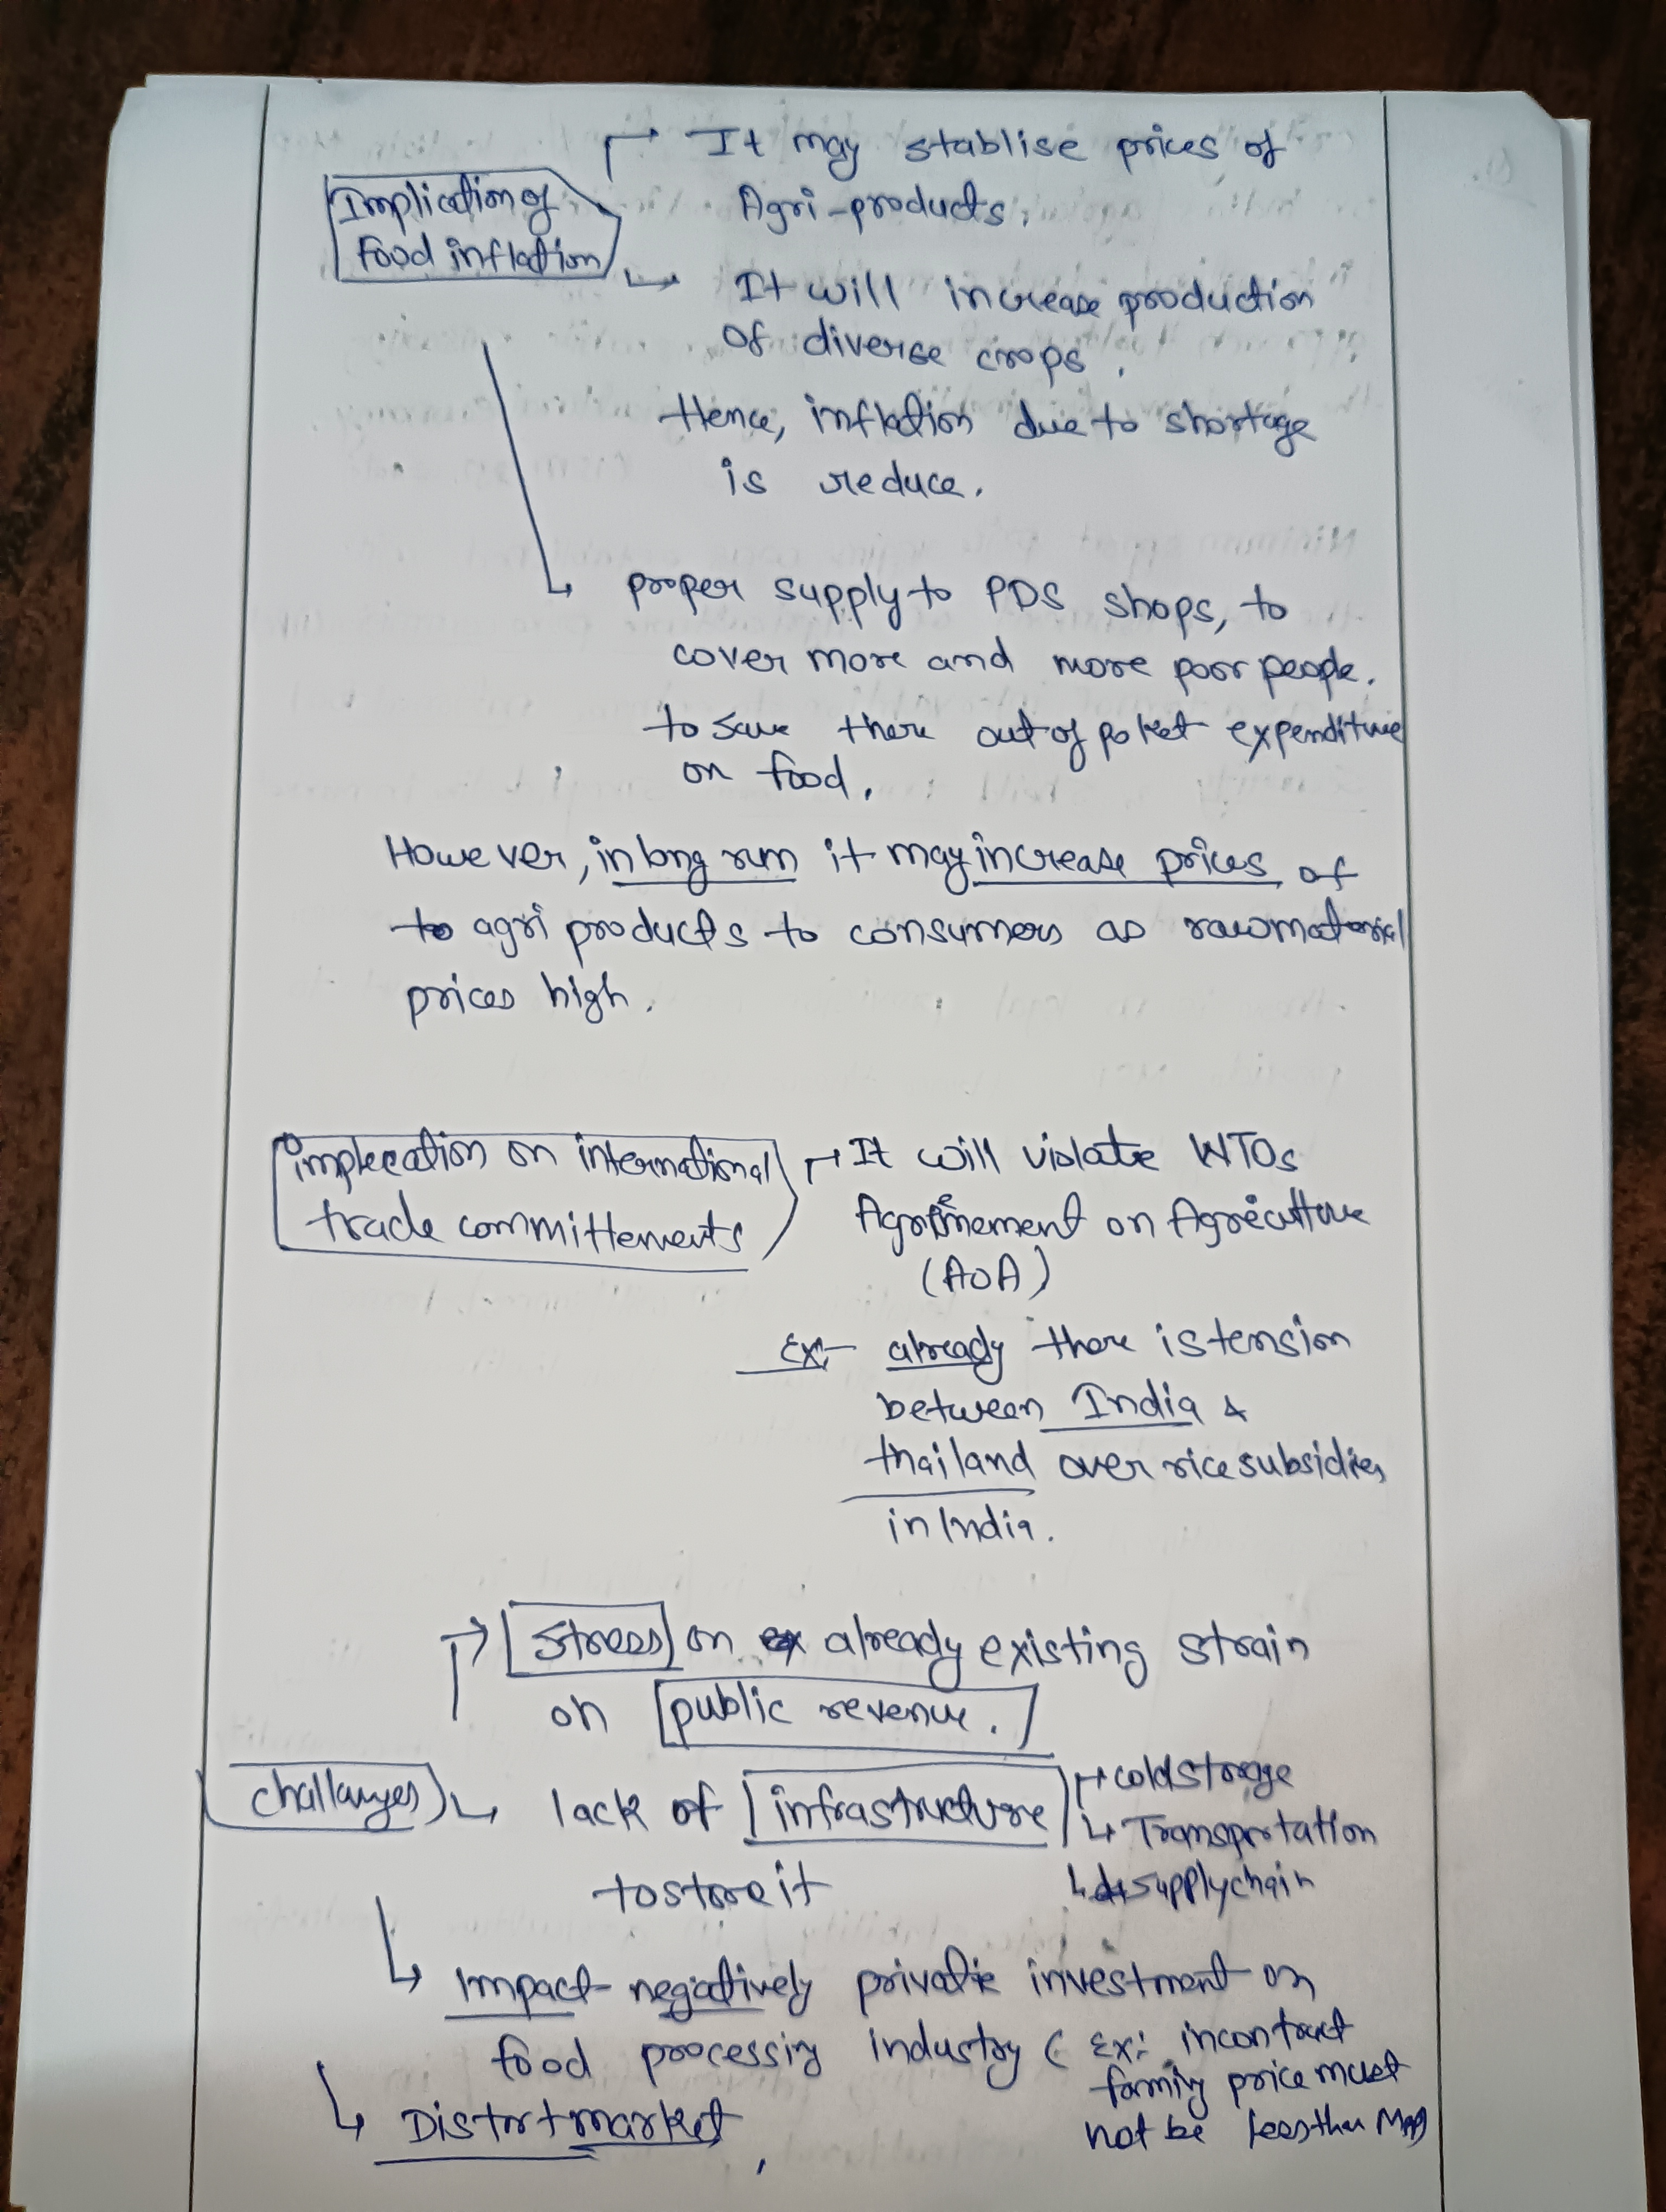 Implication of
Food inflation
It may stablise prices of
Agri-products.
It will increase production
of diverse crops.
Hence, inflation due to shortage
is reduce.
proper supply to PDS shops, to
cover more and more poor people.
to save there out of poket expenditure
on food.
However, in long run it may increase prices of
to agri products to consumers as raw material
prices high.
implecation on international
trade committements
It will violate WTOs
Agreement on Agreculture
(AOA)
Ex- already there is tension
between India &
thailand over rice subsidies
in India.
stress on already existing strain
on public revenue.
challanges
lack of infrastructure
to store it
cold storage
Transportation
supply chain
Impact negatively private investment on
food processing industry ( Ex: in contract
farming price must
not be less than MSP)
Distort market,